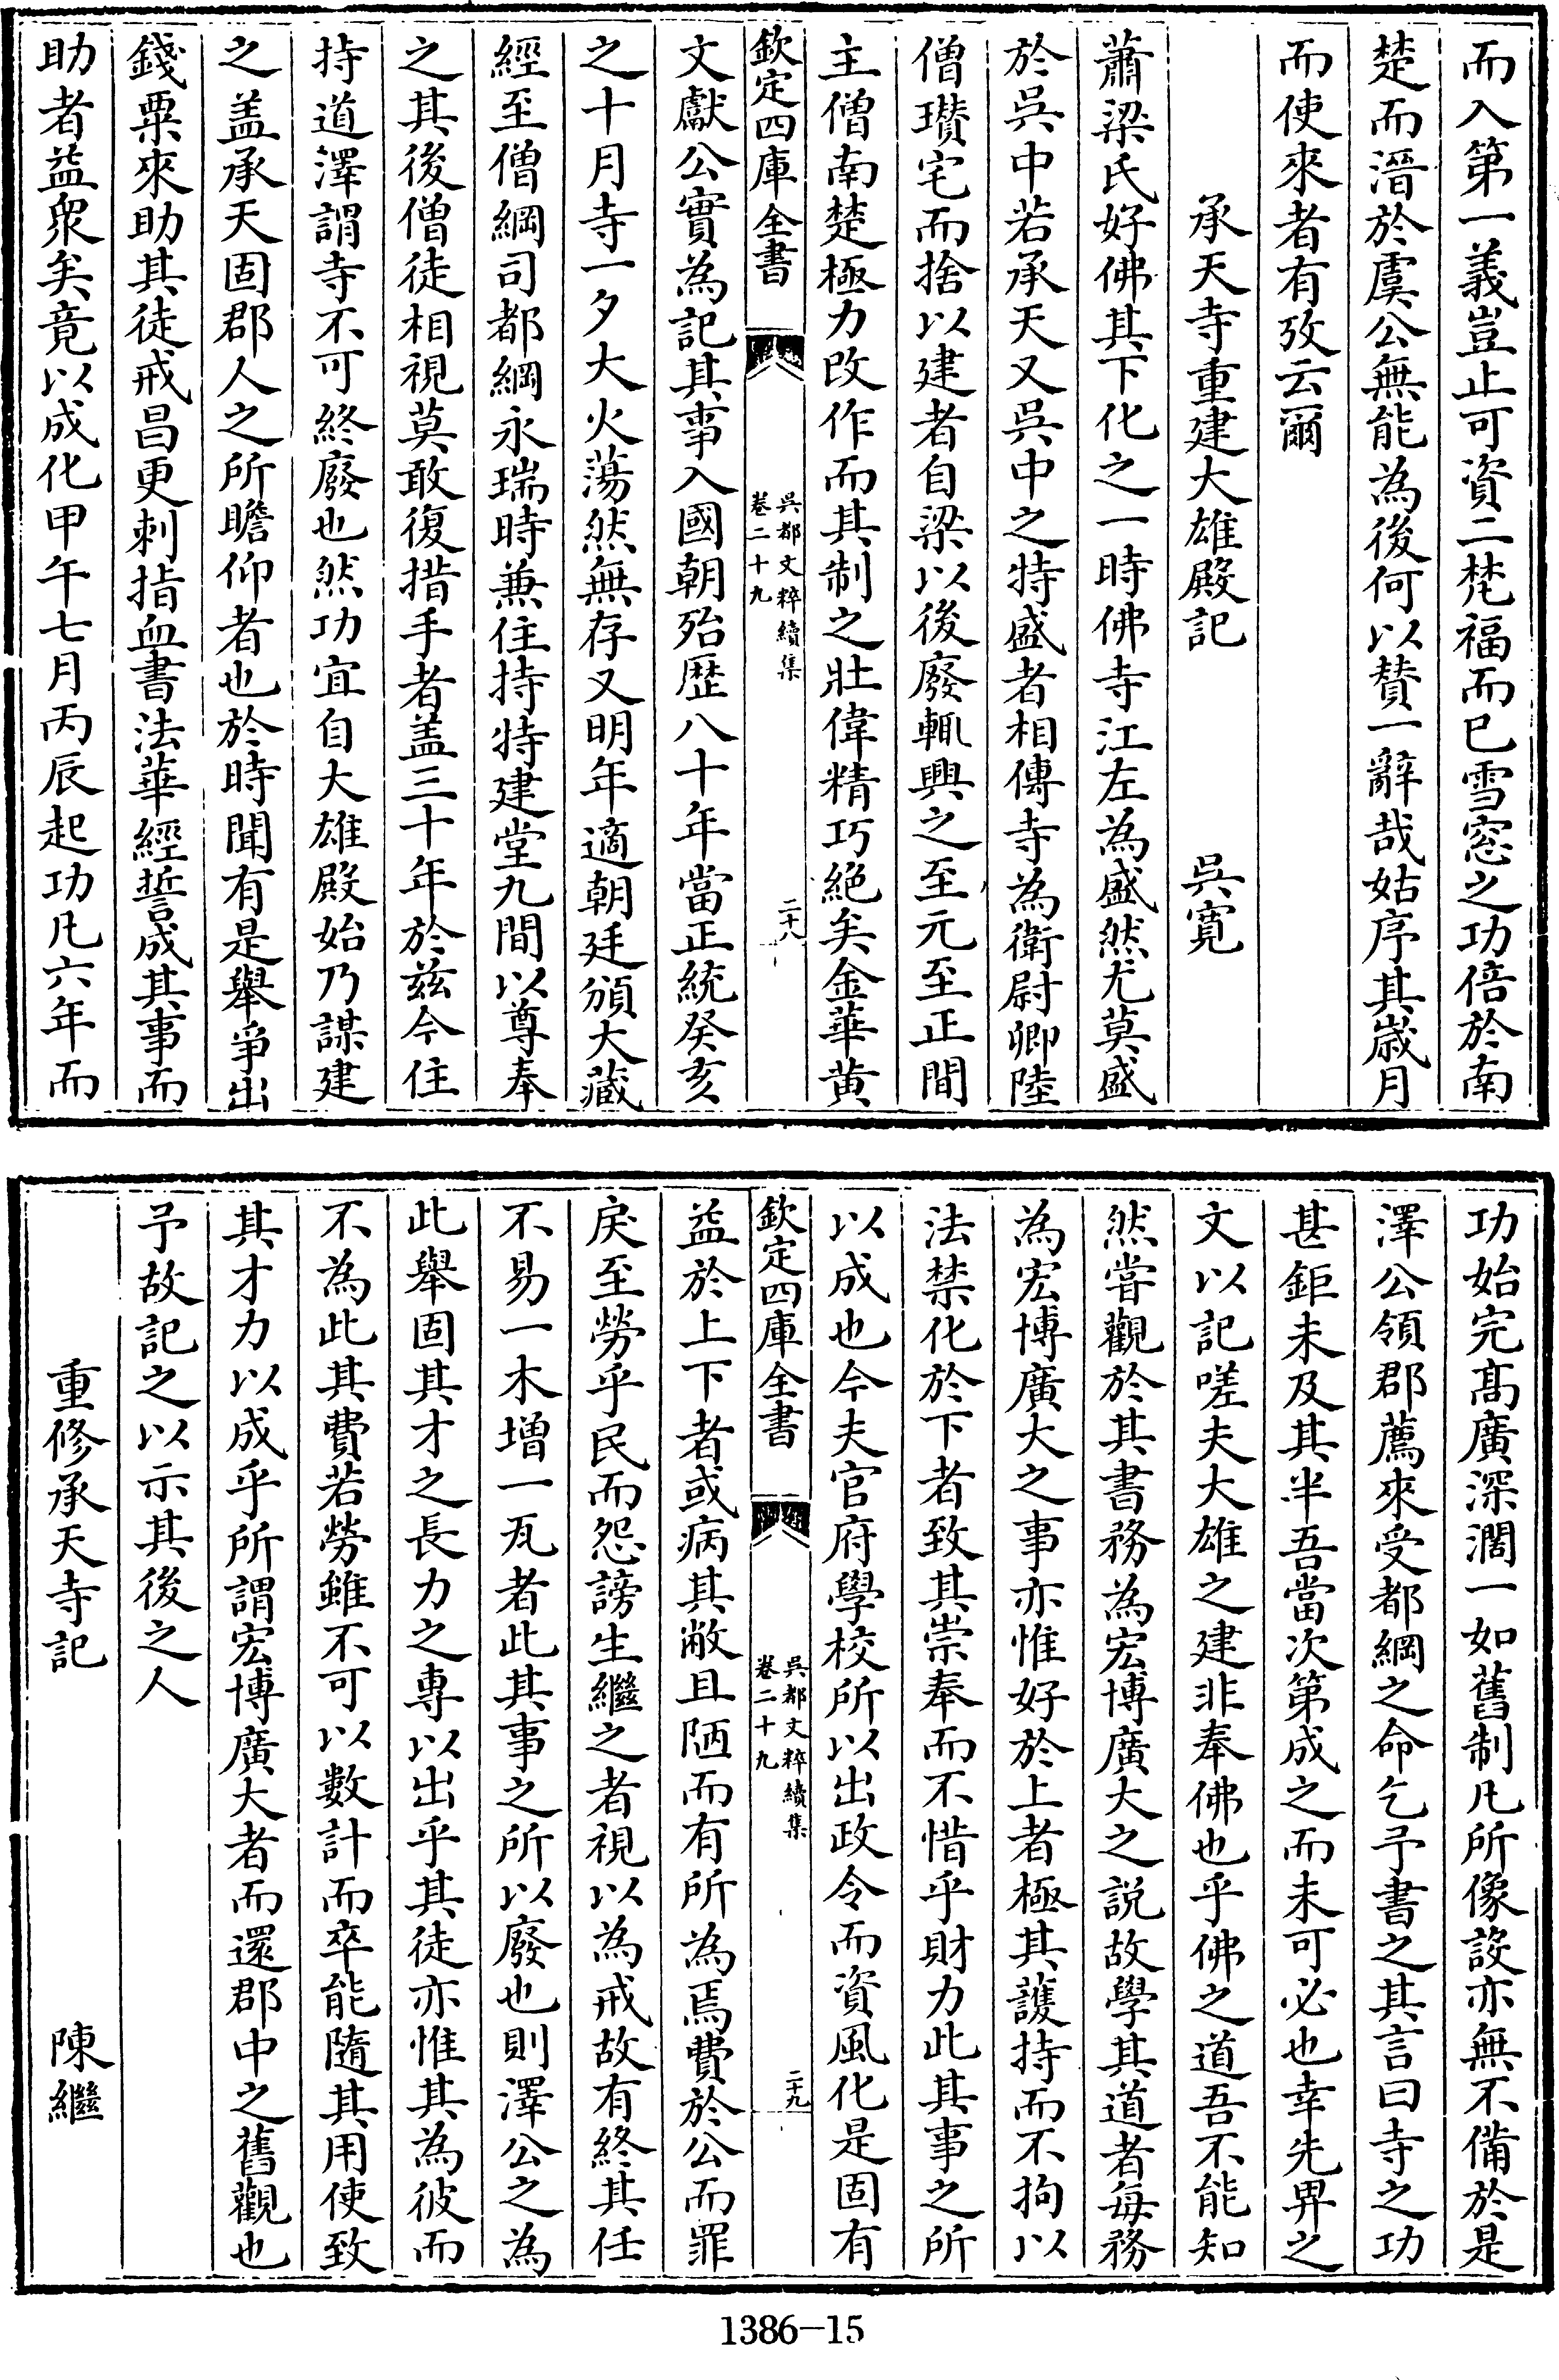 而入第一義豈止可資二梵福而已雪窓之功倍於南
楚而溍於虞公無能為後何以賛一辭哉姑序其嵗月
而使來者有攷云爾
承天寺重建大雄殿記 吳寛
蕭梁氏好佛其下化之一時佛寺江左為盛然尤莫盛
於吳中若承天又吳中之特盛者相傳寺為衛尉卿陸
僧瓚宅而捨以建者自梁以後廢輒興之至元至正間
主僧南楚極力改作而其制之壯偉精巧絕矣金華黄
欽定四庫全書
吳都文粹續集
卷二十九
二十八
文獻公實為記其事入國朝殆歴八十年當正統癸亥
之十月寺一夕大火蕩然無存又明年適朝廷頒大藏
經至僧綱司都綱永瑞時兼住持特建堂九間以尊奉
之其後僧徒相視莫敢復措手者盖三十年於兹今住
持道澤謂寺不可終廢也然功宜自大雄殿始乃謀建
之盖承天固郡人之所瞻仰者也於時聞有是舉爭出
錢粟來助其徒戒昌更刺指血書法華經誓成其事而
助者益衆矣竟以成化甲午七月丙辰起功凡六年而
功始完髙廣深濶一如舊制凡所像設亦無不備於是
澤公領郡薦來受都綱之命乞予書之其言曰寺之功
甚鉅未及其半吾當次第成之而未可必也幸先畀之
文以記嗟夫大雄之建非奉佛也乎佛之道吾不能知
然甞觀於其書務為宏博廣大之説故學其道者每務
為宏博廣大之事亦惟好於上者極其護持而不拘以
法禁化於下者致其崇奉而不惜乎財力此其事之所
以成也今夫官府學校所以出政令而資風化是固有
欽定四庫全書
吳都文粹續集
卷二十九
二十九
益於上下者或病其敝且陋而有所為焉費於公而罪
戾至勞乎民而怨謗生繼之者視以為戒故有終其任
不易一木增一瓦者此其事之所以廢也則澤公之為
此舉固其才之長力之專以出乎其徒亦惟其為彼而
不為此其費若勞雖不可以數計而卒能隨其用使致
其才力以成乎所謂宏博廣大者而還郡中之舊觀也
予故記之以示其後之人
重修承天寺記 陳繼
1386-15